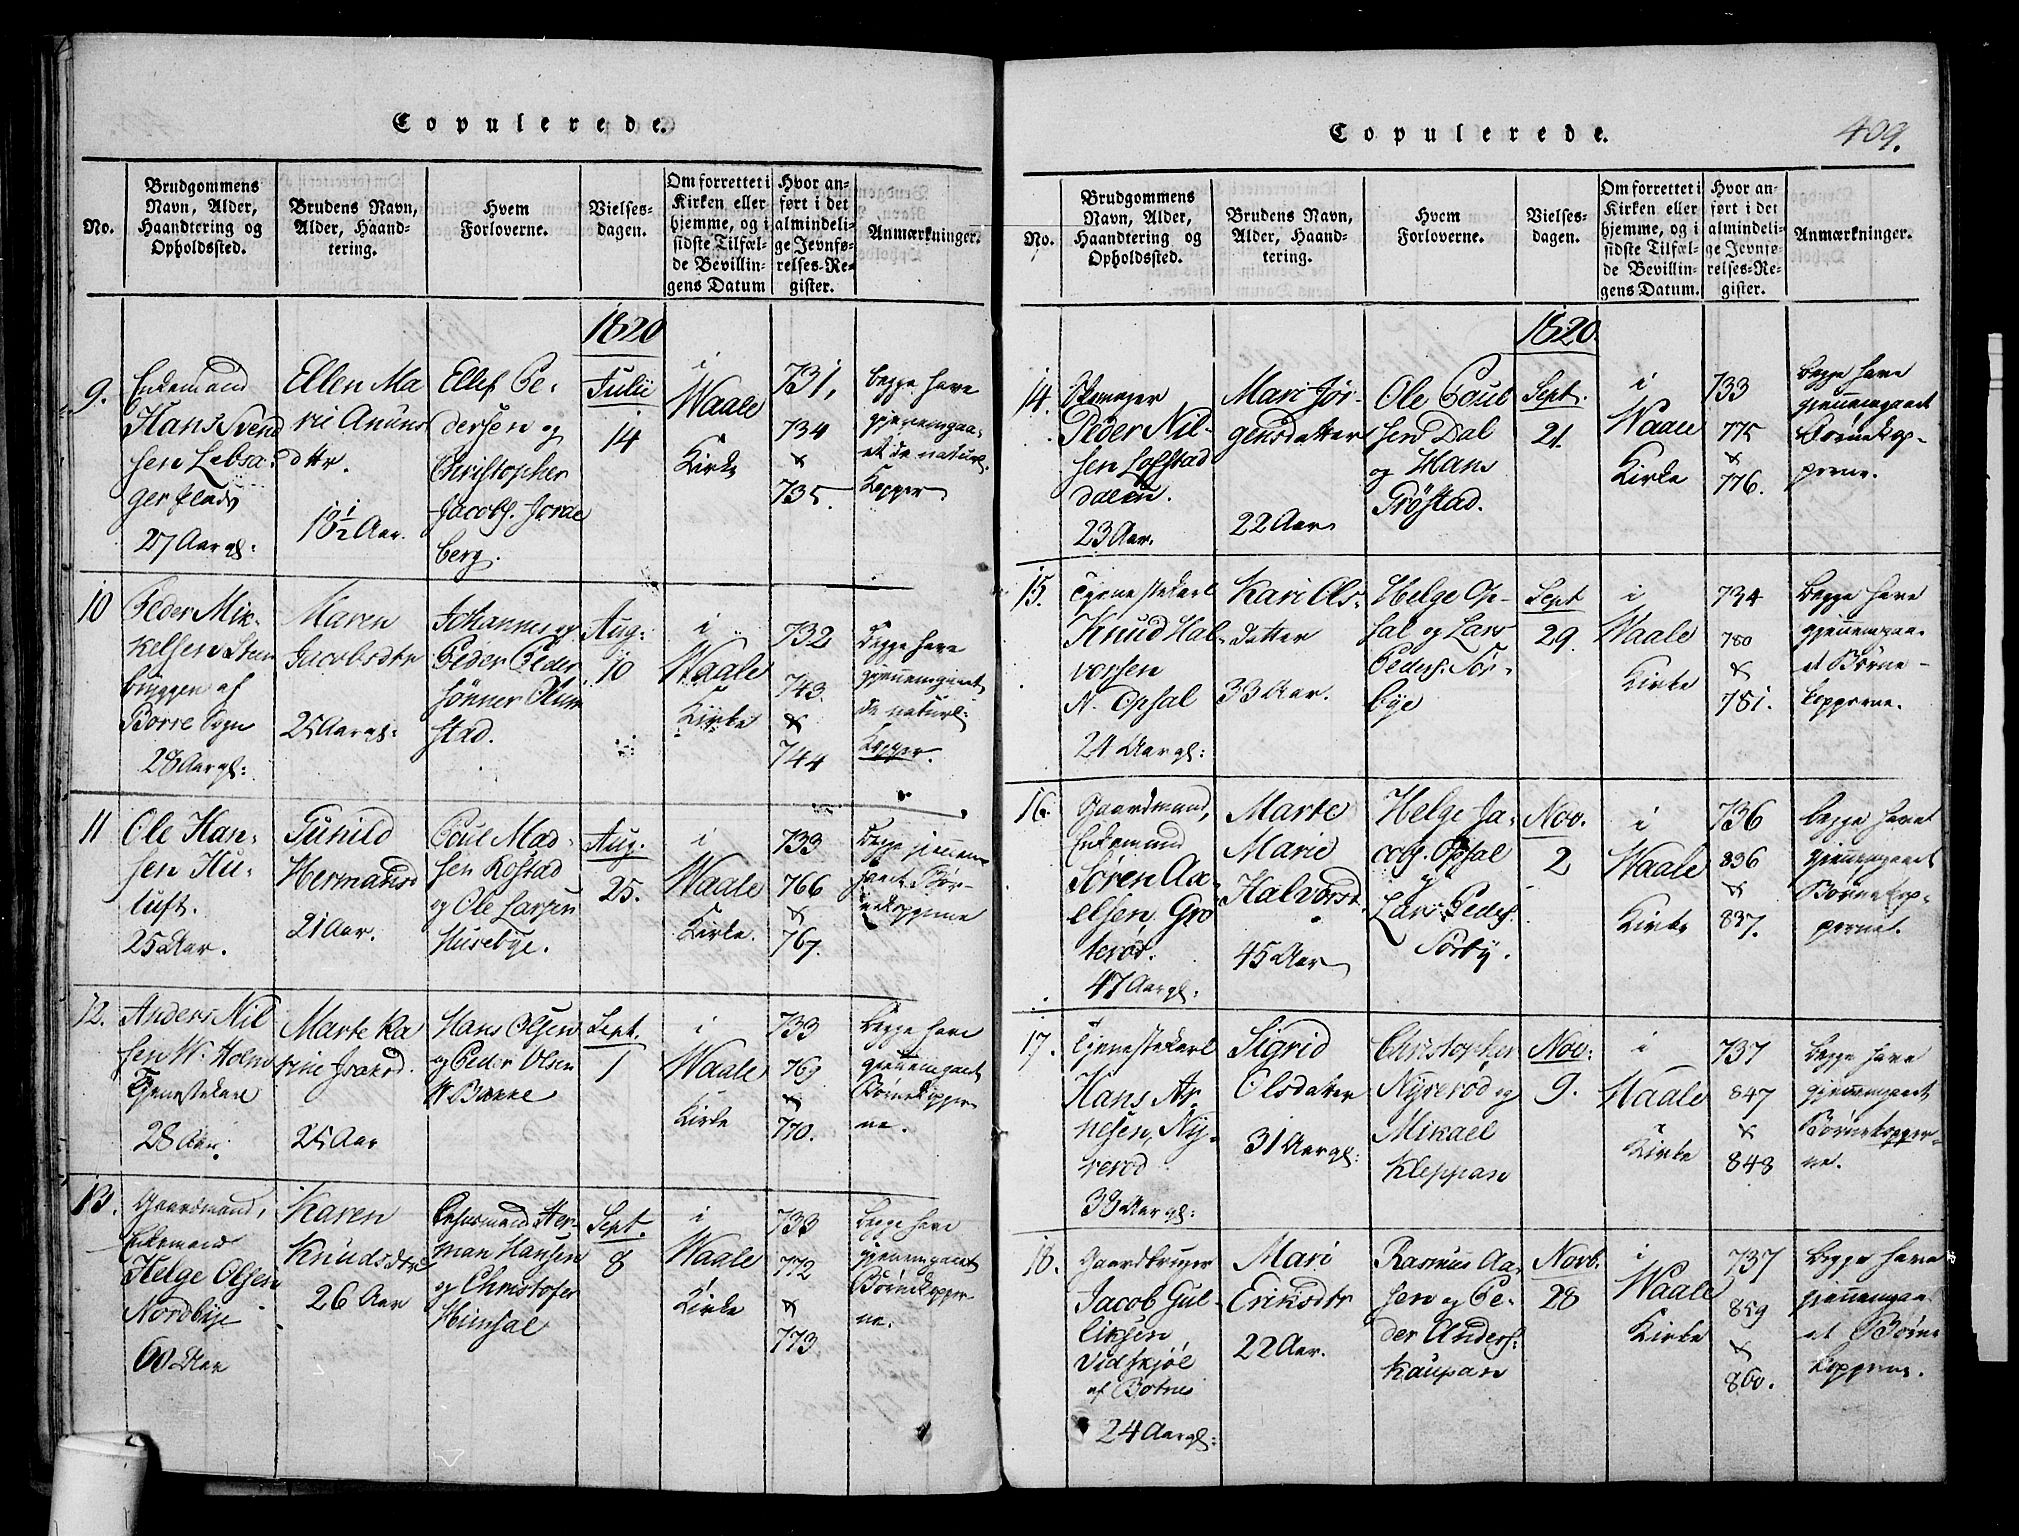 Copulerede.
No.
Brudgommens
Navn, Alder,
Haandtering og
Opholdssted.
Brudens Navn,
Alder, Haand-
tering.
Hvem
Forloverne.
Vielses-
dagen.
Om forrettet i
Kirken eller
hjemme, og i
sidste Tilfæl-
de Bevillin-
gens Datum
Hvor an-
ført i det
almindeli-
ge Jevnfø-
relses-Re-
gister.
Anmærkninger.
1820
9.
Enkemand
Hans Svend
sen Lebsa-
ger plads
27 Aar gl:
Ellen Ma
rie Anuns
dttr.
18½ Aar.
Ellef Pe-
dersen og
Christopher
Jacobs.
berg.
Julii
14
i
Waale
Kirke
731,
734
&
735.
begge have
gjennemgaa-
et de naturl:
Kopper
10
Peder Mik-
kelsen Steen
bryggen af
Borre Sogn
28 Aar gl:
Maren
Jacobsdtr
25 Aar gl:
Johannes og
Peder Peder
sønner
stad.
Aug:
10
i
Waale
Kirke
732
743.
&
744
Begge have
gjennemgaaet
de naturl:
Kopper.
11
Ole Han-
sen Hu-
tuft.
25 Aar.
Gunild
Hermansd
21 Aar.
Poul Mad-
sen Rostad
og Ole Larsen
Husebye.
Aug.
25.
i
Waale
Kirke.
733
766
&
767.
Begge gjennem
gaaet Bør-
nekopperne
12.
Anders Nil
sen W. Holm
Tjenestekarl
28 Aar.
Marte Ka
rine Isaksd.
25 Aar
Hans Olsen
og Peder Olsen
W Bakke
Sept.
1
i
Waale
Kirke
733
769
&
770.
Begge have
gjennemgaaet
Børnekopper
ne.
13.
Gaardmand,
Enkemand
Helge Olsen
Nordbye
60 Aar
Karen
Knudsdtr
26 Aar
Her-
man Hansen
og Christofer
Himsal
Sept.
8
i
Waale
Kirke
733
772
&
773
Begge have
gjennemgaaet
Børnekopper
ne.
Copulerede.
409.
No.
Brudgommens
Navn, Alder,
Haandtering og
Opholdssted.
Brudens Navn,
Alder, Haand-
tering.
Hvem
Forloverne.
Vielses-
dagen.
Om forrettet i
Kirken eller
hjemme, og i
sidste Tilfæl-
de Bevillin-
gens Datum.
Hvor an-
ført i det
almindeli-
ge Jevnfø-
relses-Re-
gister.
Anmærkninger.
1820.
14.
Skomager
Peder Nil-
sen Lofstad
dalen.
23 Aar.
Mari Jør-
gensdatter
22 Aar
Ole Poul
sen Dal
og Hans
Grøstad.
Sept.
21.
i
Waale
Kirke
733
775
&
776.
begge have
gjennemgaaet
Børnekop-
perne.
15.
Tjenestekarl
Knud Hal-
vorsen
N. Opsal
24 Aar gl:
Kari Ols-
datter
33 Aar.
Helge Op-
sal og Lars
Peders. Sør-
bye
Sept
29.
i
Waale
Kirke
734
780
&
781.
begge have
gjennemgaa-
et Børne-
kopperne.
16.
Gaardmand,
Enkemand
Søren Aa-
elsen Gro
terød.
47 Aar gl:
Marte
Marie
Halvorsd.
45 Aar
Helge Ja-
cobs. Opsal
&
Lars Peders.
Sørby.
Nov.
2
i
Waale
Kirke
736
836
&
837.
begge havet
gjennemgaaet
Børnekop-
pernet.
17.
Tjenestekarl
Hans Ar-
nesen, Ny-
rerød
38 Aar gl:
Sigrid
Olsdatter
31 Aar gl:
Christopher
Nyrerød og
Mikael
Kleppan
Nov:
9.
i
Waale
Kirke
737
847
&
848
begge have
gjennemgaaet
Børnekopper-
ne.
18.
Gaardbruger
Jacob Gul-
liksen
Vidskjøl
af Botne
24 Aar gl:
Mari
Eriksdtr
22 Aar.
Rasmus Aa-
sen og Pe-
der Anders.
Kaupan
Novb.
28
i
Waale
Kirke
737
859
&
860.
begge have
gjennemgaa-
et Børne
kopperne.